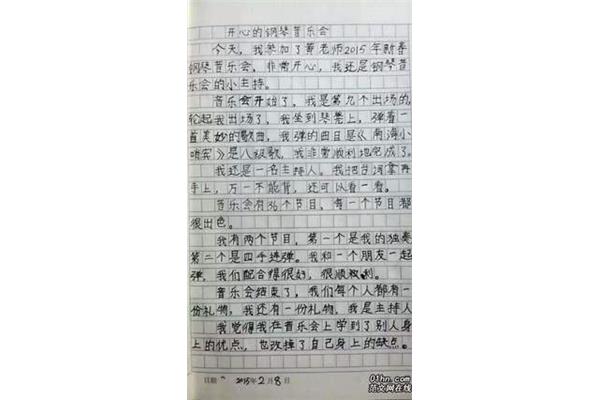 开心的钢琴音乐会
今天，我参加了覃老师2015年新春
钢琴音乐会，非常开心，我还是钢琴音
乐会的小主持。
音乐会开始了，我是第九个出场的
轮起我出场了，我坐到琴凳上，弹着一
首美妙的歌曲，我弹的曲目是《南海小
哨兵》是八级歌，我非常顺利地完成了。
我还是一名主持人。我把台词拿再
手上，万一不能背，还可以看一看。
音乐会有36个节目，每一个节目都
很出色。
我有两个节目，第一个是我的独奏
第二个是四手连弹。我和一个朋友一起
弹，我们配合得很好，很顺利。
音乐会结束了，我们每个人都有一
份礼物，我还有一份礼物，我是主持人
我觉得我在音乐会上学到了别人身
上的优点，也改掉了自己身上的缺点。
日期 2015年2月8日
01hn.com
范文网在线